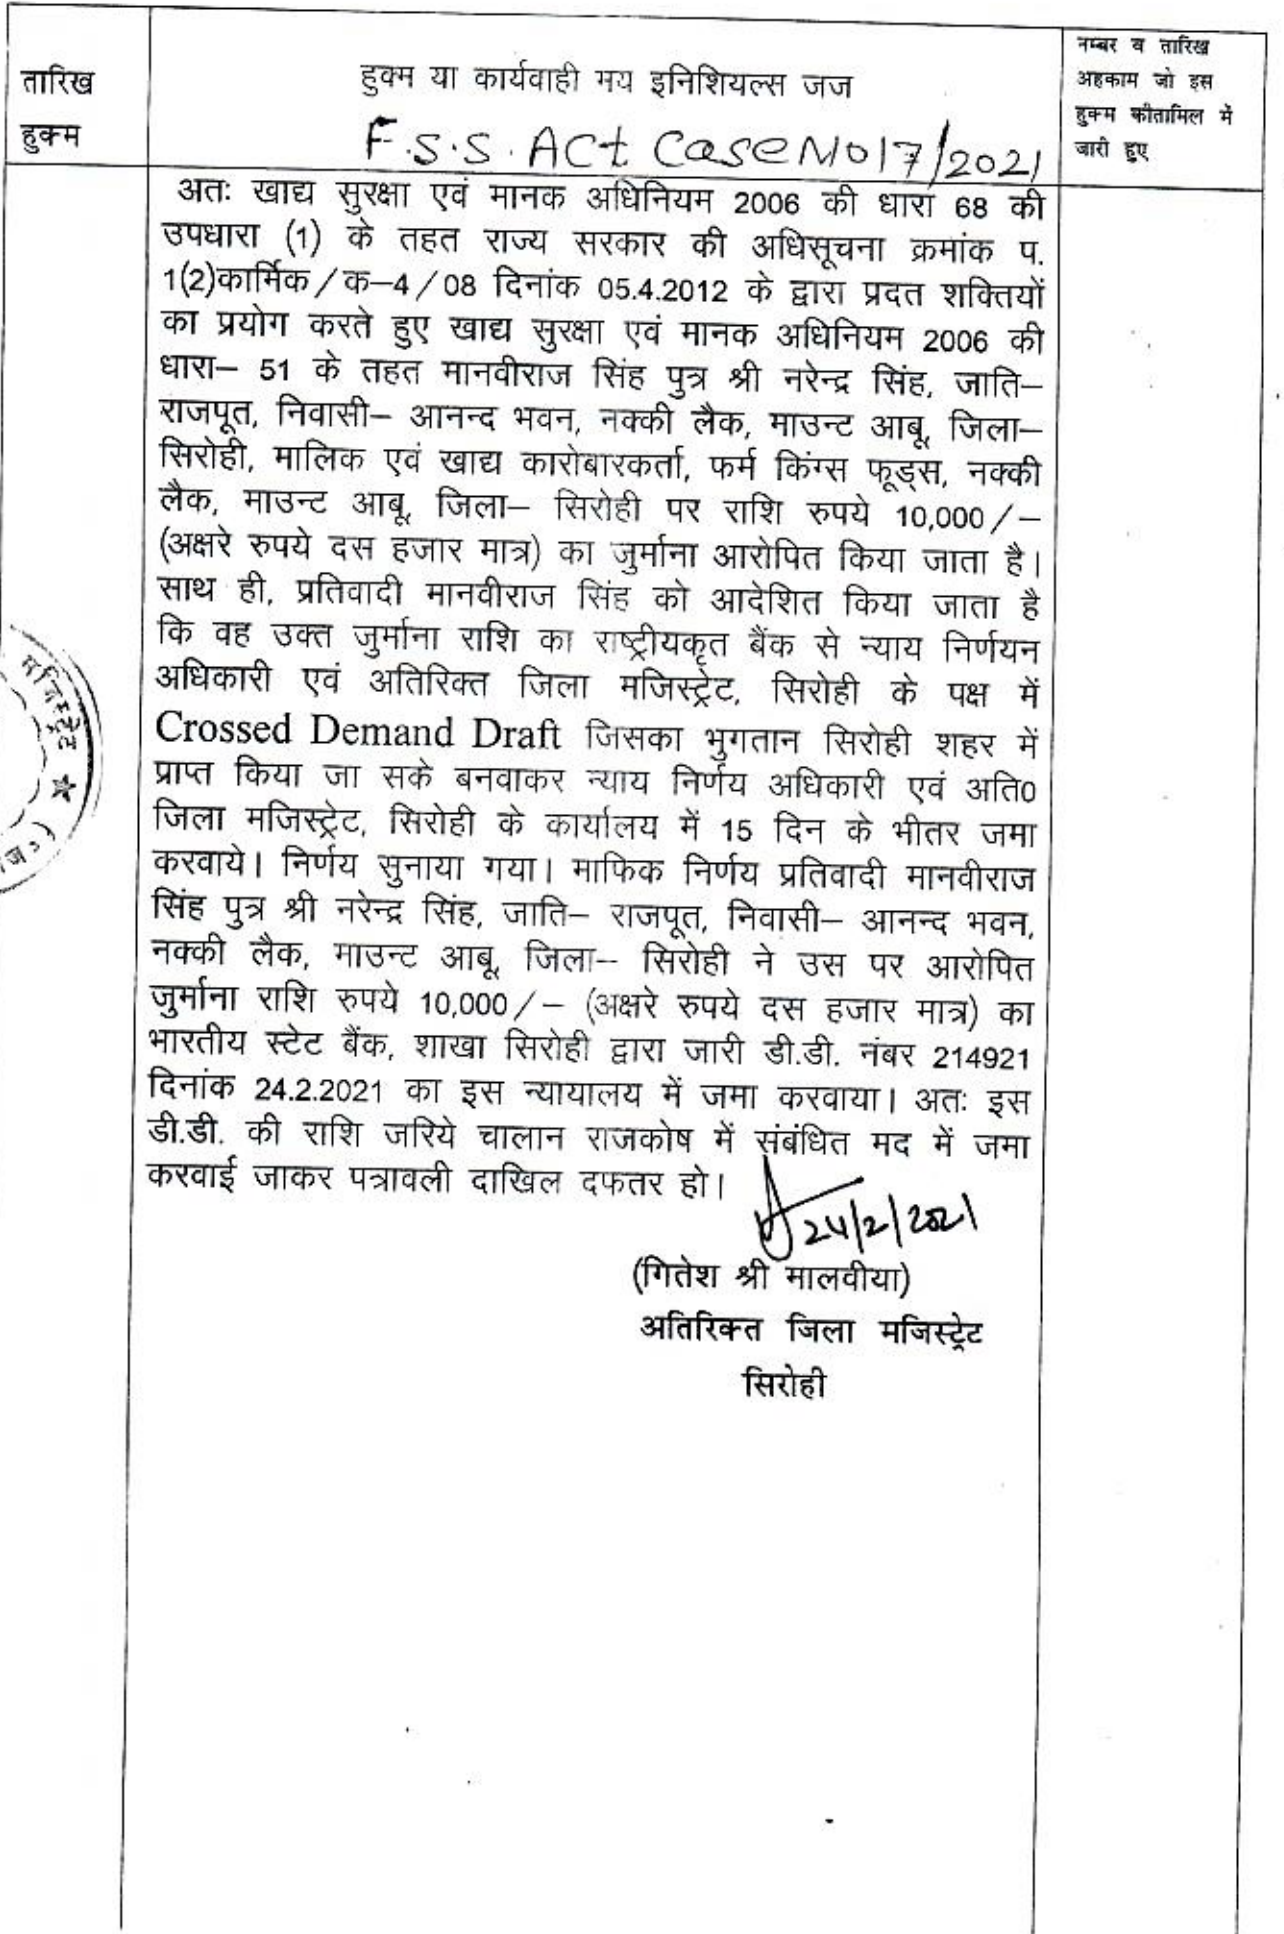 तारिख
हुक्म
हुक्म या कार्यवाही मय इनिशियल्स जज
नम्बर व तारिख
अहकाम जो इस
हुक्म कीतामिल में
जारी हुए
F.S.S. ACt Case No 17/2021
अतः खाद्य सुरक्षा एवं मानक अधिनियम 2006 की धारा 68 की
उपधारा (1) के तहत राज्य सरकार की अधिसूचना क्रमांक प.
1(2)कार्मिक/क–4/08 दिनांक 05.4.2012 के द्वारा प्रदत शक्तियों
का प्रयोग करते हुए खाद्य सुरक्षा एवं मानक अधिनियम 2006 की
धारा– 51 के तहत मानवीराज सिंह पुत्र श्री नरेन्द्र सिंह, जाति–
राजपूत, निवासी– आनन्द भवन, नक्की लैक, माउन्ट आबू, जिला–
सिरोही, मालिक एवं खाद्य कारोबारकर्ता, फर्म किंग्स फूड्स, नक्की
लैक, माउन्ट आबू, जिला– सिरोही पर राशि रुपये 10,000/–
(अक्षरे रुपये दस हजार मात्र) का जुर्माना आरोपित किया जाता है।
साथ ही, प्रतिवादी मानवीराज सिंह को आदेशित किया जाता है
कि वह उक्त जुर्माना राशि का राष्ट्रीयकृत बैंक से न्याय निर्णयन
अधिकारी एवं अतिरिक्त जिला मजिस्ट्रेट, सिरोही के पक्ष में
Crossed Demand Draft जिसका भुगतान सिरोही शहर में
प्राप्त किया जा सके बनवाकर न्याय निर्णय अधिकारी एवं अति0
जिला मजिस्ट्रेट, सिरोही के कार्यालय में 15 दिन के भीतर जमा
करवाये। निर्णय सुनाया गया। माफिक निर्णय प्रतिवादी मानवीराज
सिंह पुत्र श्री नरेन्द्र सिंह, जाति– राजपूत, निवासी– आनन्द भवन,
नक्की लैक, माउन्ट आबू, जिला-- सिरोही ने उस पर आरोपित
जुर्माना राशि रुपये 10,000/– (अक्षरे रुपये दस हजार मात्र) का
भारतीय स्टेट बैंक, शाखा सिरोही द्वारा जारी डी.डी. नंबर 214921
दिनांक 24.2.2021 का इस न्यायालय में जमा करवाया। अतः इस
डी.डी. की राशि जरिये चालान राजकोष में संबंधित मद में जमा
करवाई जाकर पत्रावली दाखिल दफतर हो।
24/2/2021
(गितेश श्री मालवीया)
अतिरिक्त जिला मजिस्ट्रेट
सिरोही
मजिस्ट्रेट